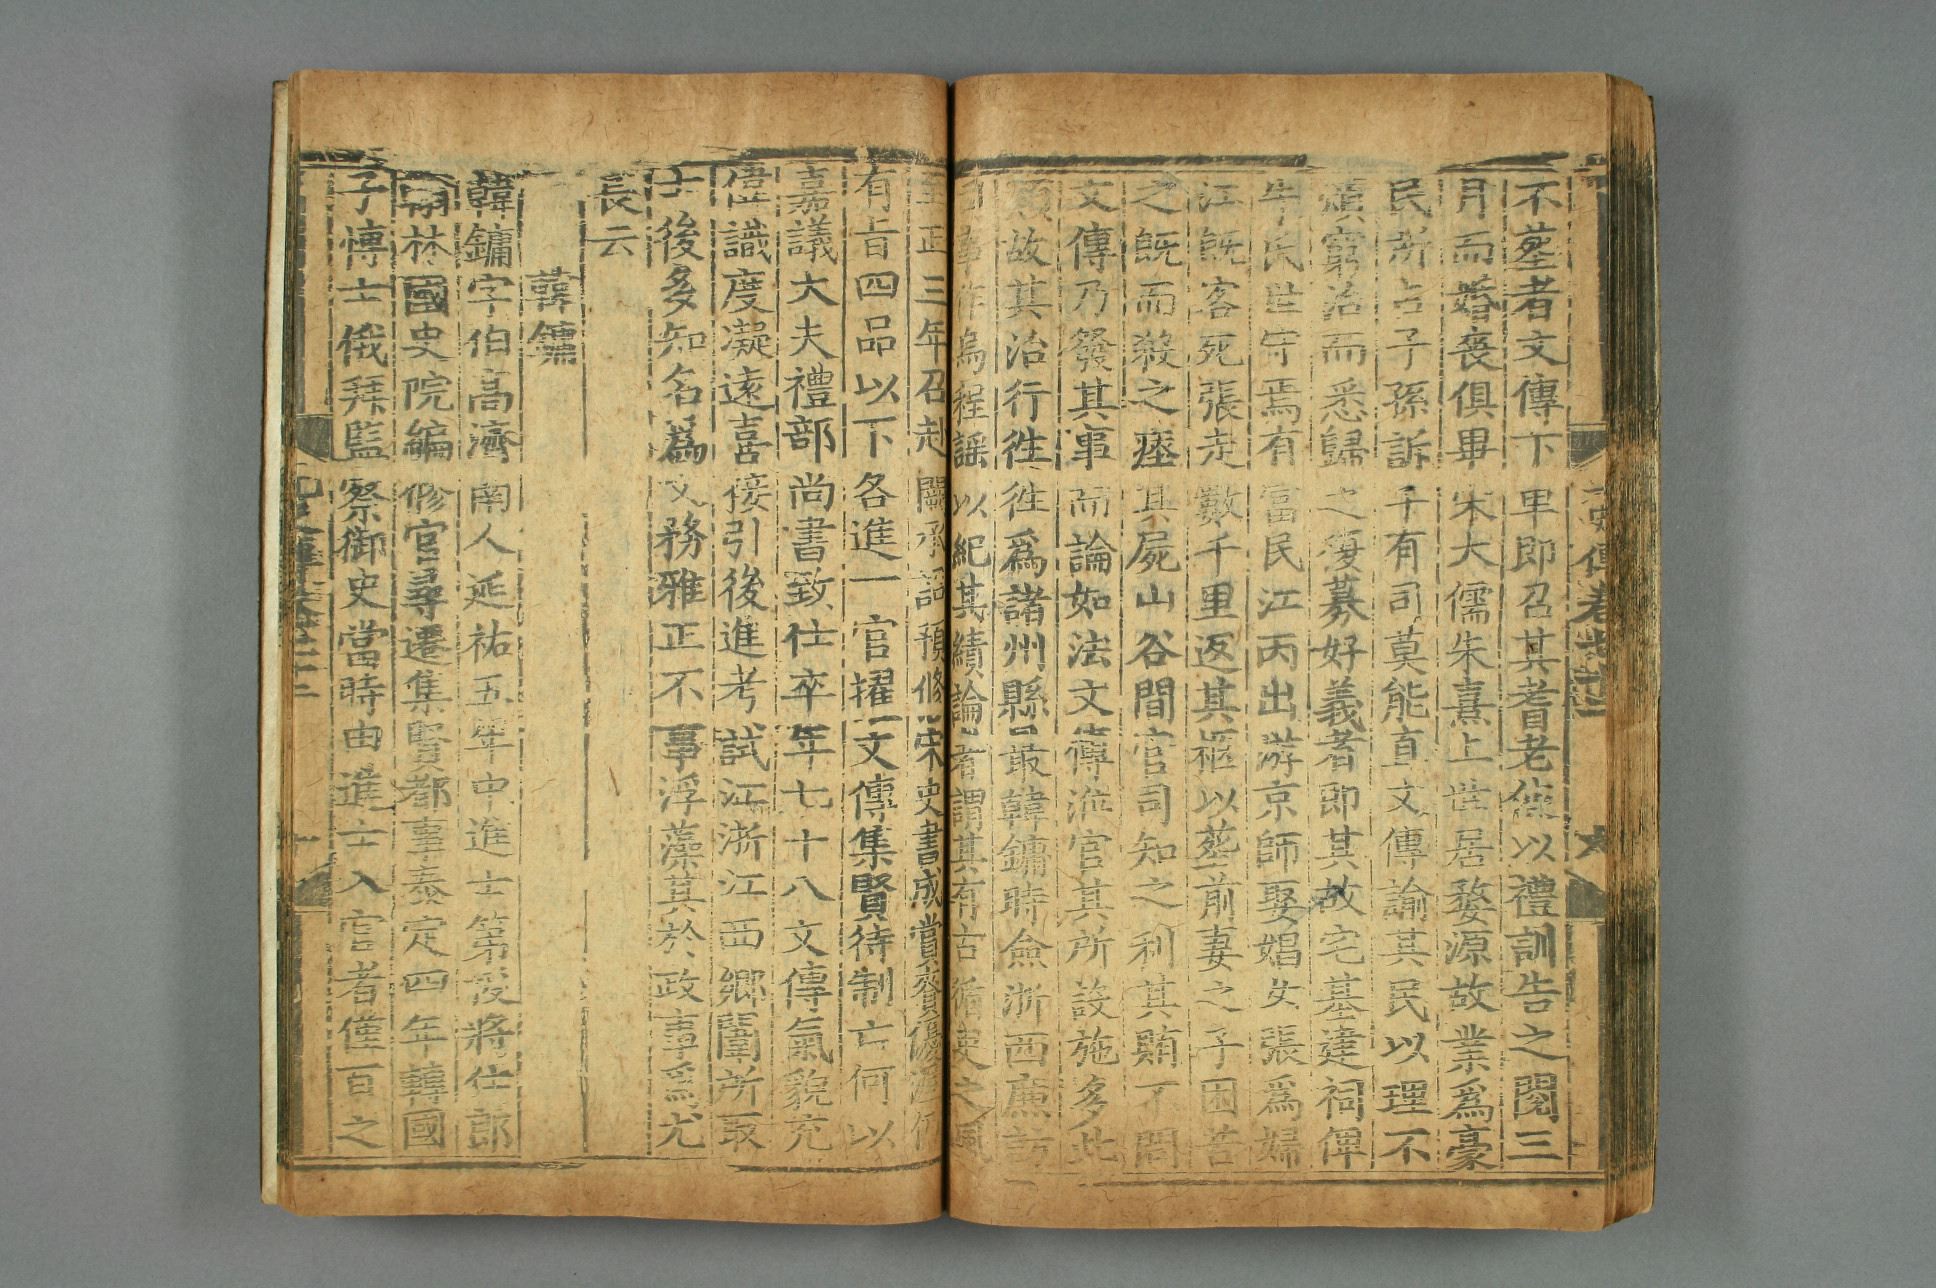 不塟者文傳下車即召其耆老使以禮訓告之閱三
月而婚喪俱畢宋大儒朱熹上世居婺源故業爲豪
民所占子孫訴于有司莫能直文傳諭其民以理不
煩窮治而悉歸之復募好義者即其故宅基建祠俾
朱氏世守焉有富民江丙出游京師娶娼女張爲婦
江旣客死張走數千里返其柩以塟前妻之子困苦
之旣而殺之瘞其屍山谷間官司知之利其賄不問
文傳乃發其事而論如法文傳涖官其所設施多此
類故其治行徃徃爲諸州縣最韓鏞時僉浙西廉訪
司事作烏程謠以紀其績論者謂其有古循吏之風
至正三年召赴闕承詔預修宋史書成賞賚優渥仍
有旨四品以下各進一官擢文傳集賢待制亡何以
嘉議大夫禮部尚書致仕卒年七十八文傳氣貌充
偉識度凝遠喜接引後進考試江浙江西鄉闈所取
士後多知名爲文務雅正不事浮藻其於政事爲尤
長云
韓鏞
韓鏞字伯高濟南人延祐五年中進士第授將仕郎
翰林國史院編修官尋遷集賢都事泰定四年轉國
子博士俄拜監察御史當時由進士入官者僅百之